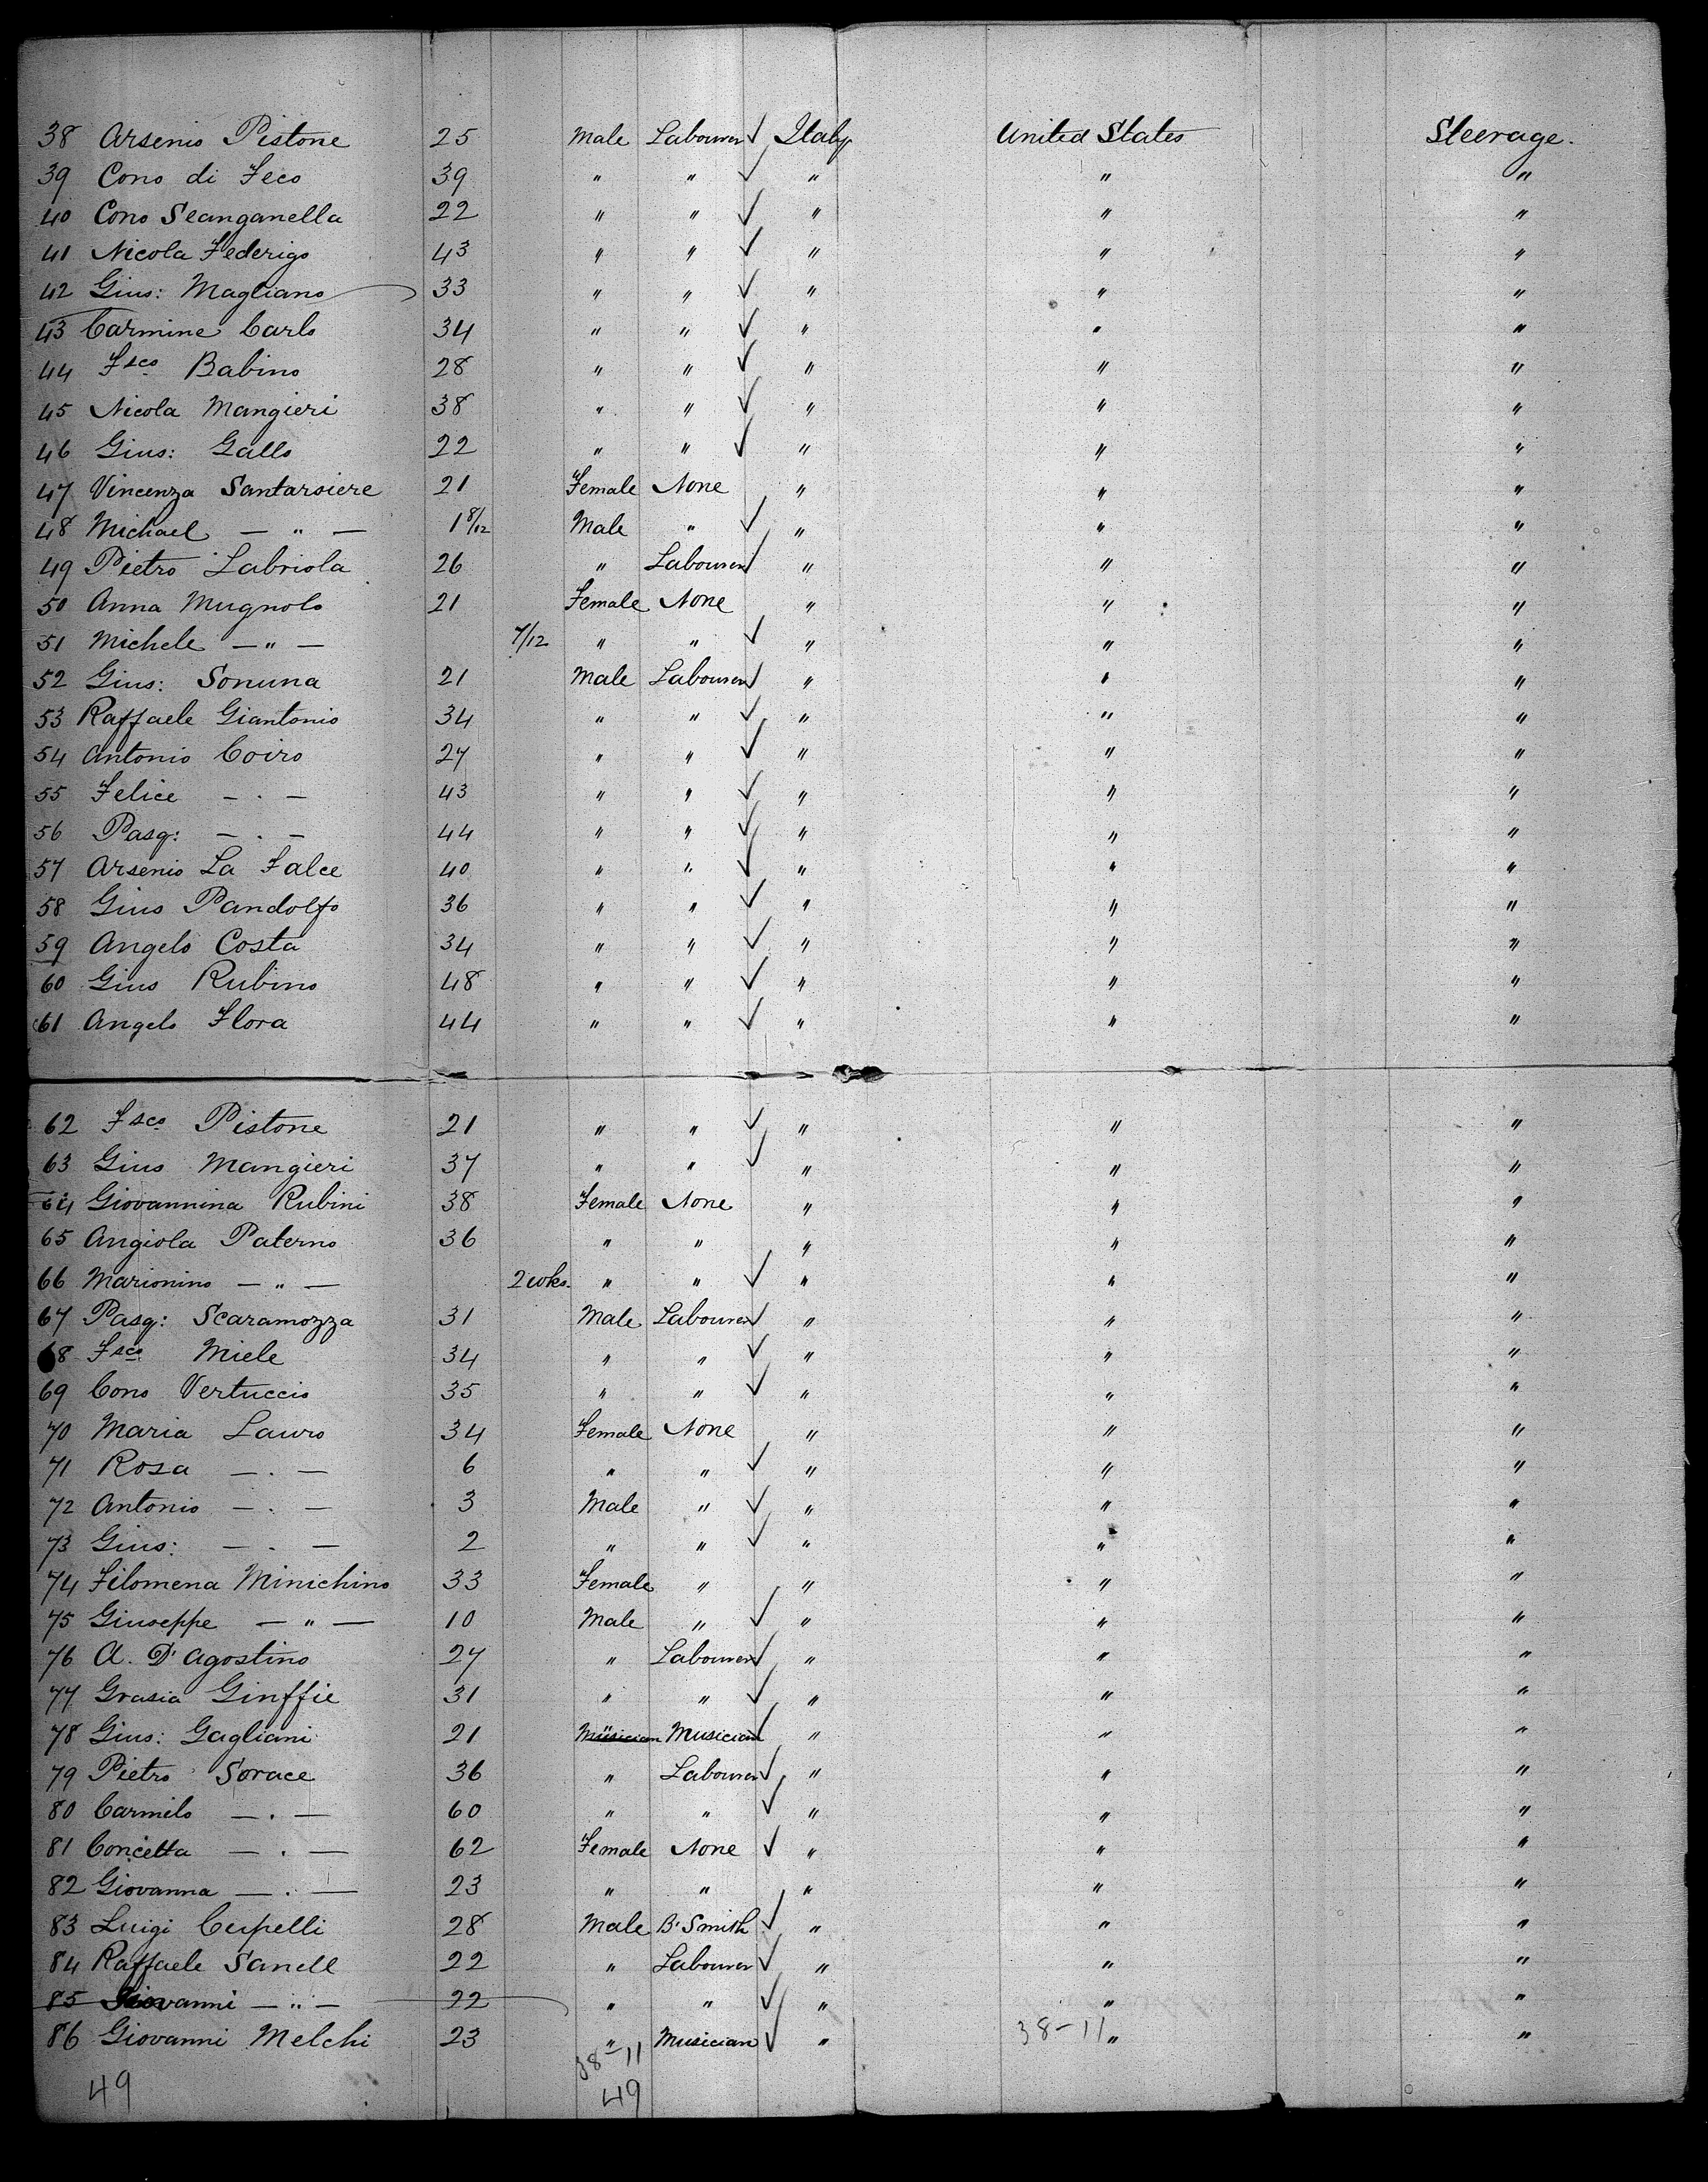 38 Arsenio Pistone 25 Male Labourer ✓ Italy United States Steerage.
39 Cono di Feco 39 " " ✓ " " "
40 Cono Scanganella 22 " " ✓ " " "
41 Nicola Federigo 43 " " ✓ " " "
42 Gius: Magliano 33 " " ✓ " " "
43 Carmine Carlo 34 " " ✓ " " "
44 Fsco Babino 28 " " ✓ " " "
45 Nicola Mangieri 38 " " ✓ " " "
46 Gius: Gallo 22 " " ✓ " " "
47 Vincenza Santarsiere 21 Female None " " "
48 Michael — " — 1 8/12 Male " ✓ " " "
49 Pietro Labriola 26 " Labourer ✓ " " "
50 Anna Mugnolo 21 Female None " " "
51 Michele — " — 7/12 " " ✓ " " "
52 Gius: Sonuna 21 Male Labourer ✓ " " "
53 Raffaele Giantonio 34 " " ✓ " " "
54 Antonio Coiro 27 " " ✓ " " "
55 Felice — . — 43 " " ✓ " " "
56 Pasq: — . — 44 " " ✓ " " "
57 Arsenio La Falce 40 " " ✓ " " "
58 Gius Pandolfo 36 " " ✓ " " "
59 Angelo Costa 34 " " ✓ " " "
60 Gius Rubino 48 " " ✓ " " "
61 Angelo Flora 44 " " ✓ " " "
62 Fsco Pistone 21 " " ✓ " " "
63 Gius Mangieri 37 " " ✓ " " "
64 Giovannina Rubini 38 Female None " " "
65 Angiola Paterno 36 " " " " "
66 Marionino — " — 2 wks. " " ✓ " " "
67 Pasq: Scaramozza 31 Male Labourer ✓ " " "
68 Fsco Miele 34 " " ✓ " " "
69 Cono Vertuccio 35 " " ✓ " " "
70 Maria Lauro 34 Female None " " "
71 Rosa — . — 6 " " ✓ " " "
72 Antonio — . — 3 Male " ✓ " " "
73 Gius: — . — 2 " " ✓ " " "
74 Filomena Minichino 33 Female " " " "
75 Giuseppe — " — 10 Male " ✓ " " "
76 A. D'Agostino 27 " Labourer ✓ " " "
77 Grasia Ginffie 31 " " ✓ " " "
78 Gius: Gagliani 21 Musician Musician ✓ " " "
79 Pietro Sorace 36 " Labourer ✓ " " "
80 Carmelo — . — 60 " " ✓ " " "
81 Concetta — . — 62 Female None ✓ " " "
82 Giovanna — . — 23 " " " " "
83 Luigi Cupelli 28 Male B'Smith ✓ " " "
84 Raffaele Sanell 22 " Labourer ✓ " " "
85 Giovanni — " — 22 " " ✓ " " "
86 Giovanni Melchi 23 " Musician ✓ " 38-11 " "
38-11
49 49